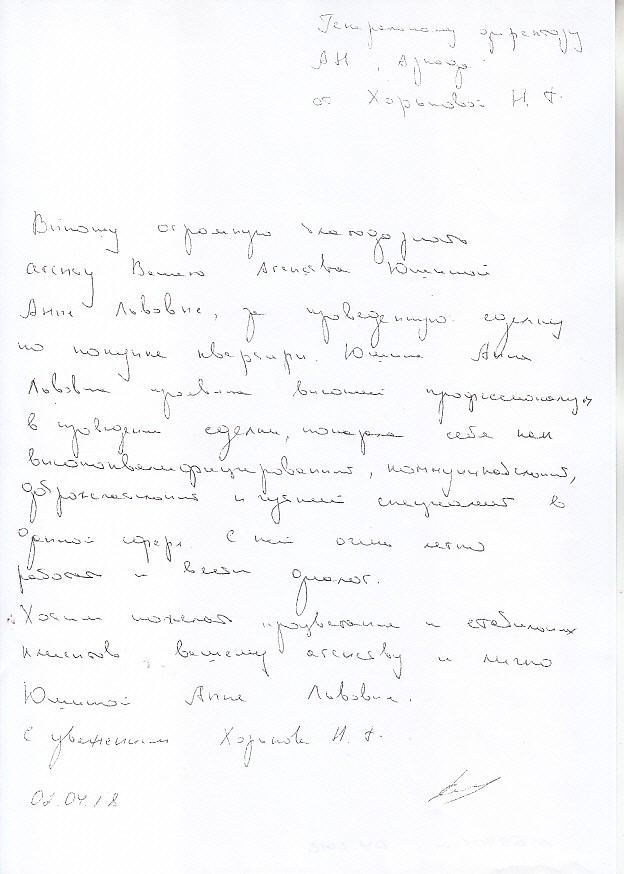 Генеральному директору
АН "Аркада"
от Хорьковой Н. Г.
Выношу огромную благодарность
агенту Вашего Агенства Юшиной
Анне Львовне, за проведенную сделку
по покупке квартиры. Юшина Анна
Львовна проявила высокий профессионализм
в проведении сделки, показала себя как
высококвалифицированный, коммуникабельный,
доброжелательный и чуткий специалист в
данной сфере. С ней очень легко
работать и вести диалог.
Хотим пожелать процветания и стабильных
клиентов вашему агенству и лично
Юшиной Анне Львовне.
С уважением Хорькова Н. Г.
02.04.18